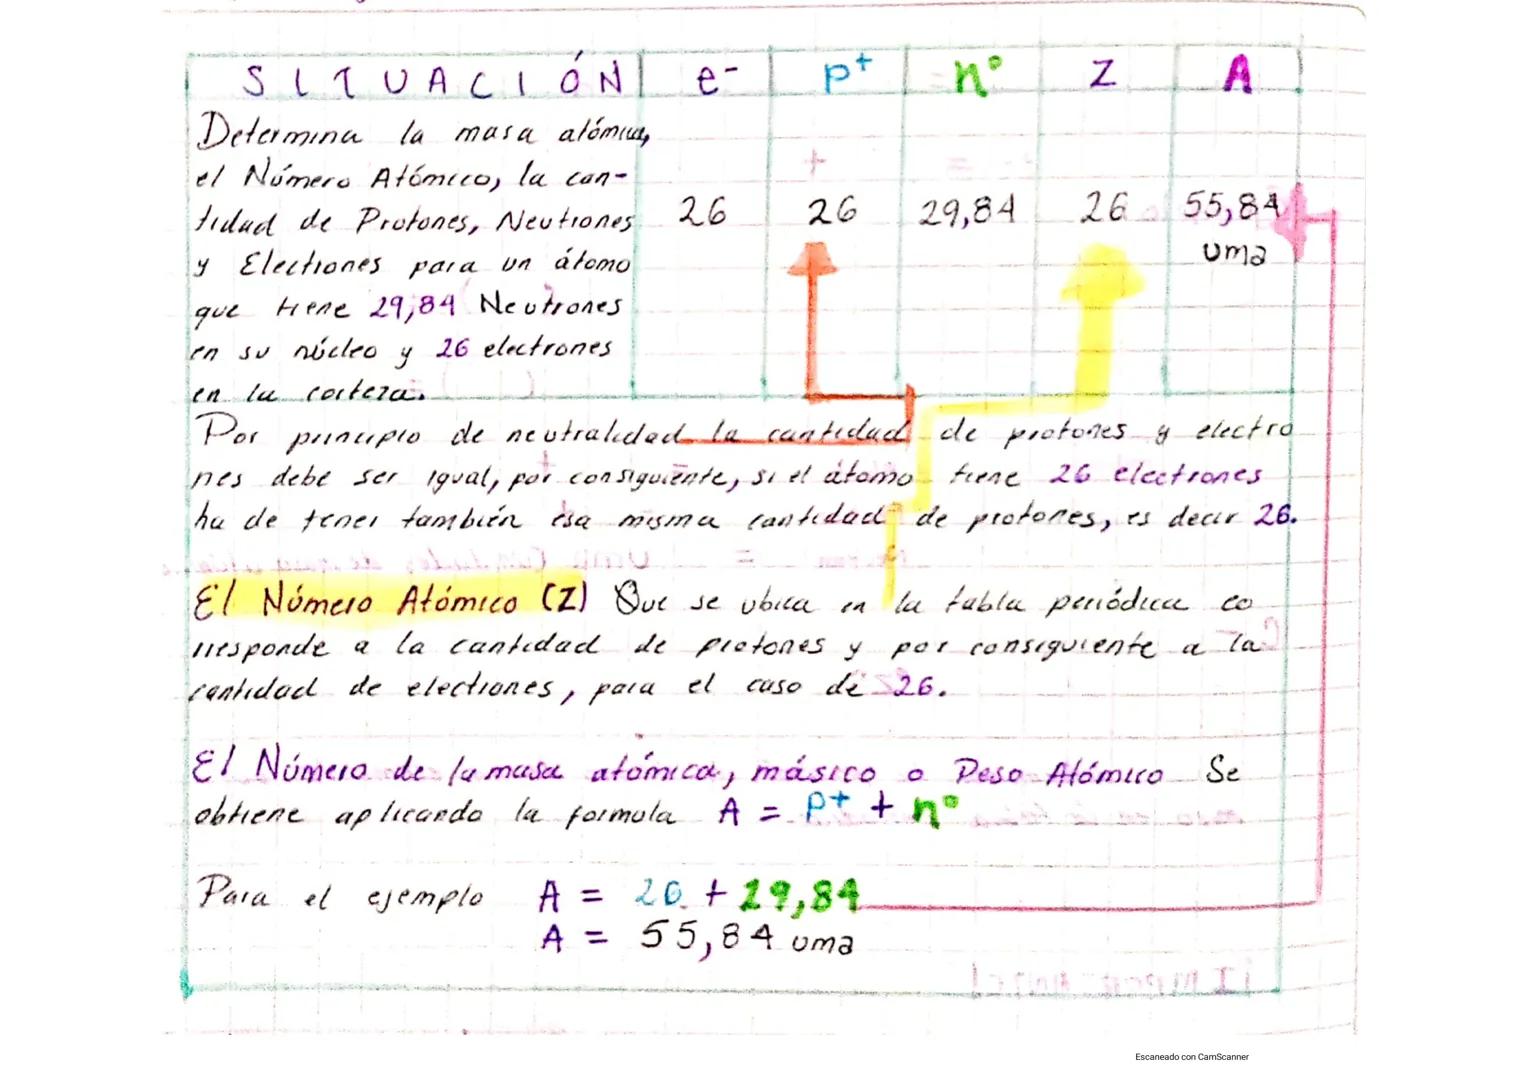 SITUACIÓN e- p+ nº Z A
Determina la masa atómica,
el Número Atómico, la can-
tidad de Protones, Neutrones
y Electrones para un átomo
que tiene 29,84 Neutrones
en su núcleo y 26 electrones
en la corteza.
26 26 29,84 26 55,84
uma
Por principio de neutralidad la cantidad de protones y electro
nes debe ser igual, por consiguiente, si el átomo tiene 26 electrones
ha de tener también esa misma cantidad de protones, es decir 26.
El Número Atómico (Z) Que se ubica en la tabla periódica co
rresponde a la cantidad de protones y por consiguiente a la
cantidad de electrones, para el caso de 26.
El Número de la masa atómica, másico o Peso Atómico Se
obtiene aplicando la formula A = p+ + nº
Para el ejemplo A = 26 + 29,84
A = 55,84 uma
Escaneado con CamScanner